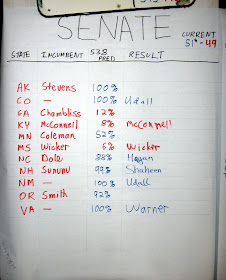 SENATE
CURRENT
51 - 49
STATE INCUMBENT 538 PRED RESULT
AK Stevens 100%
CO — 100% Udall
GA Chambliss 12%
KY McConnell 8% McConnell
MN Coleman 52%
MS Wicker 5% Wicker
NC Dole 88% Hagan
NH Sununu 99% Shaheen
NM — 100% Udall
OR Smith 92%
VA — 100% Warner